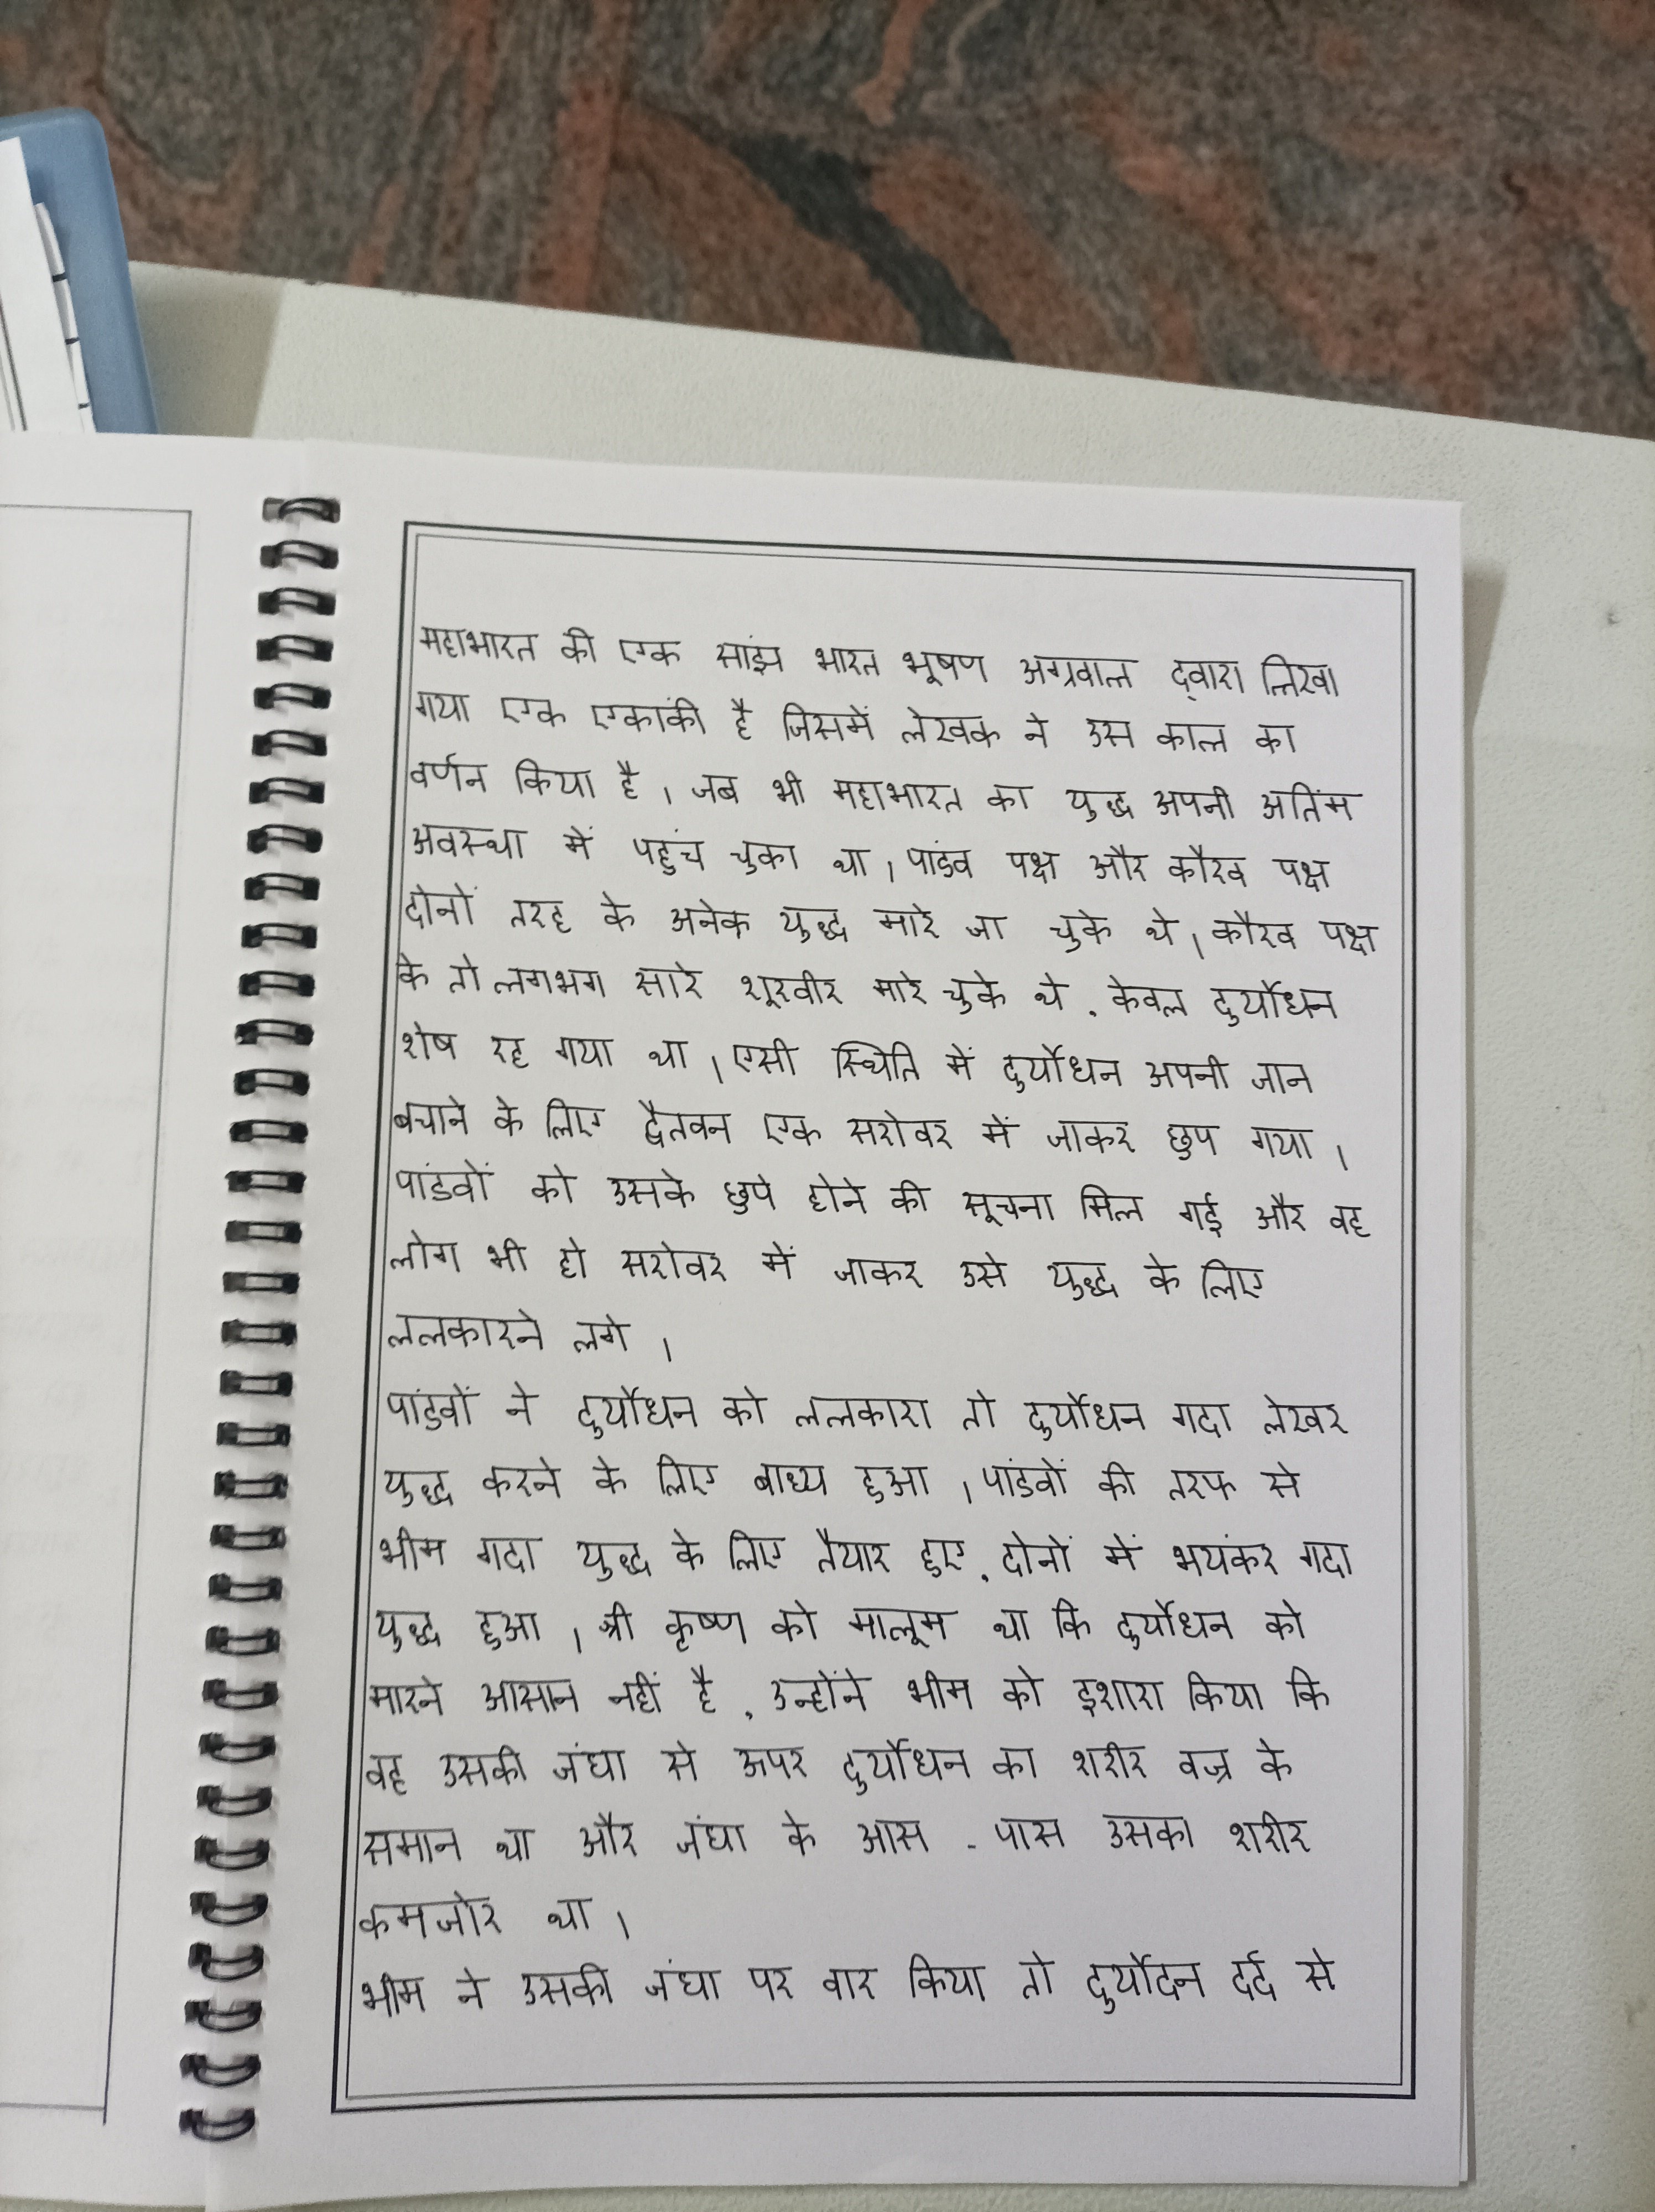 महाभारत की एक सांझ भारत भूषण अग्रवाल द्वारा लिखा
गया एक एकांकी है जिसमें लेखक ने उस काल का
वर्णन किया है । जब भी महाभारत का युद्ध अपनी अतिंम
अवस्था में पहुंच चुका था । पांडव पक्ष और कौरव पक्ष
दोनों तरह के अनेक युद्ध मारे जा चुके थे । कौरव पक्ष
के तो लगभग सारे शूरवीर मारे चुके थे . केवल दुर्योधन
शेष रह गया था । एसी स्थिति में दुर्योधन अपनी जान
बचाने के लिए द्वैतवन एक सरोवर में जाकर छुप गया ।
पांडवों को उसके छुपे होने की सूचना मिल गई और वह
लोग भी हो सरोवर में जाकर उसे युद्ध के लिए
ललकारने लगे ।
पांडवों ने दुर्योधन को ललकारा तो दुर्योधन गदा लेखर
युद्ध करने के लिए बाध्य हुआ । पांडवों की तरफ से
भीम गदा युद्ध के लिए तैयार हुए . दोनों में भयंकर गदा
युद्ध हुआ । श्री कृष्ण को मालूम था कि दुर्योधन को
मारने आसान नहीं है . उन्होंने भीम को इशारा किया कि
वह उसकी जंघा से ऊपर दुर्योधन का शरीर वज्र के
समान था और जंघा के आस - पास उसका शरीर
कमजोर था ।
भीम ने उसकी जंघा पर वार किया तो दुर्योदन दर्द से